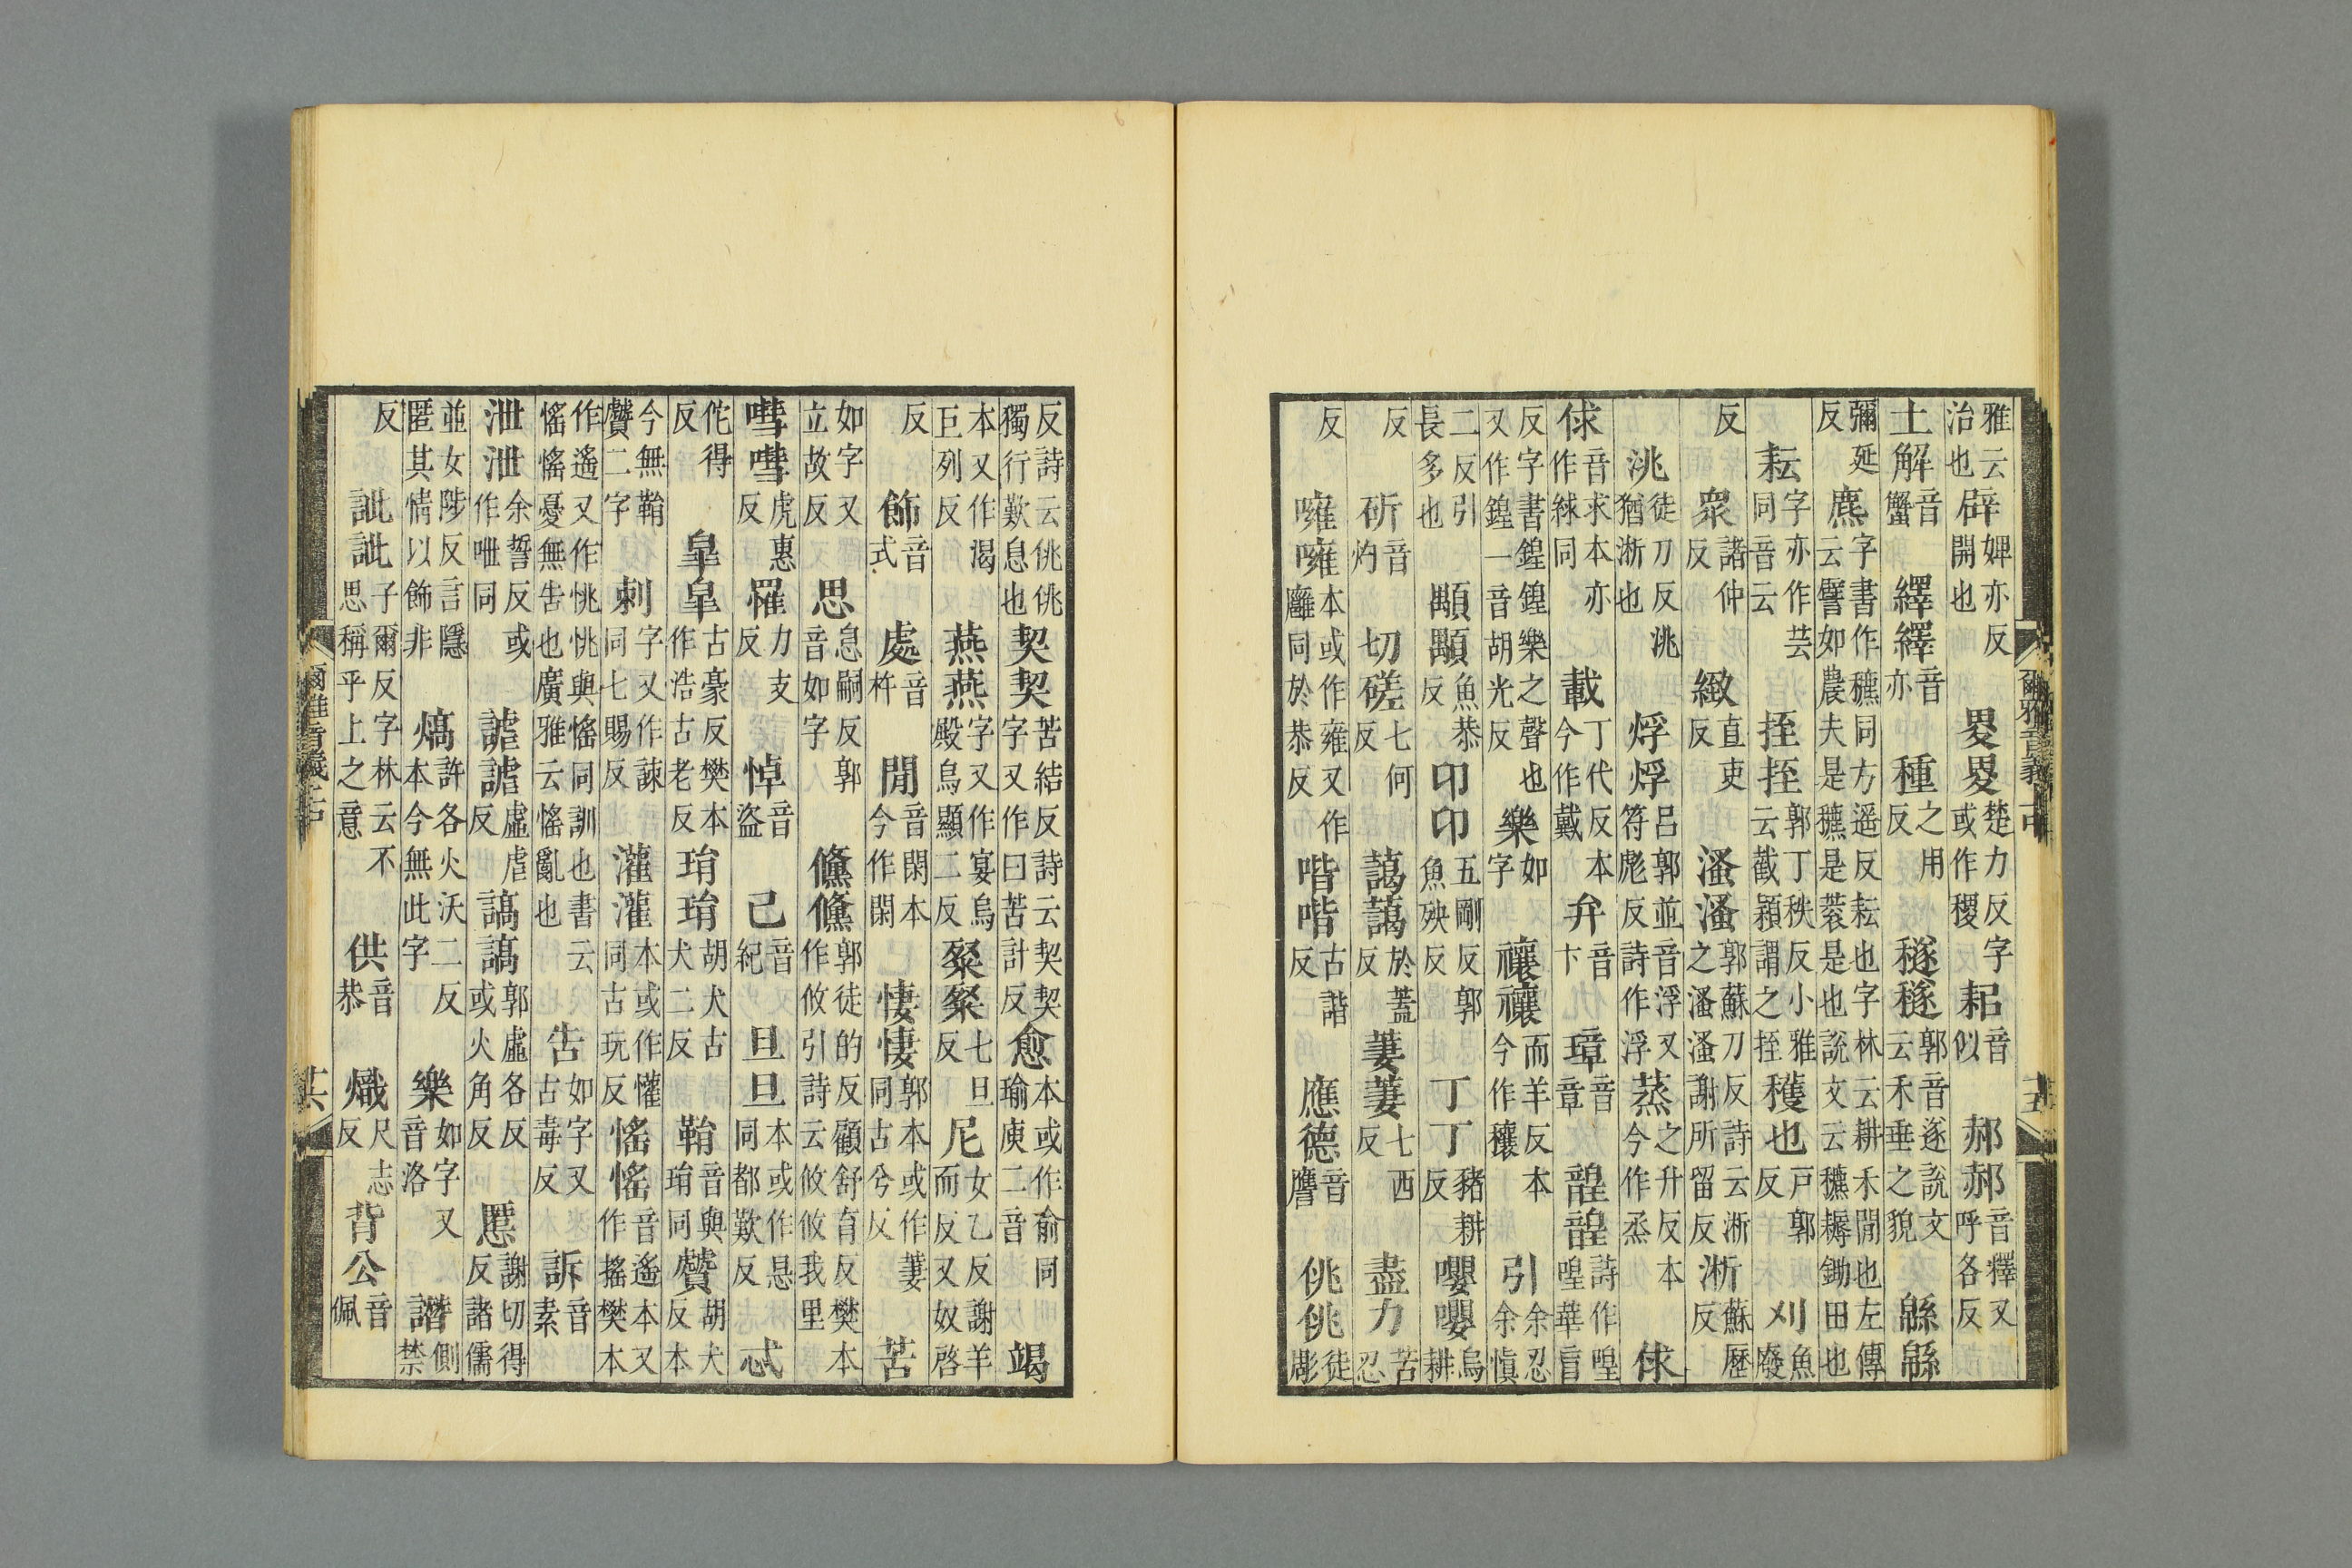 雅云治也辟婢亦反開也畟畟楚力反字或作稷耜音似郝郝音釋又呼各反
土解音蟹繹繹音亦種之用反穟穟郭音遂說文云禾垂之貌緜緜
彌延反麃字書作穮同方遥反耘也字林云耕禾閒也左傳云譬如農夫是穮是蔉是也說文云穮耨鋤田也
耘字亦作芸同音云挃挃郭丁秩反小雅云截穎謂之挃穫也戶郭反刈魚廢
反眾諸仲反緻直吏反溞溞郭蘇刀反詩云淅之溞溞謝所留反淅蘇歷反
洮徒刀反洮猶淅也烰烰呂郭並音浮又符彪反詩作浮蒸之升反本今作烝俅
俅音求本亦作絿同載丁代反本今作戴弁音卞璋音章韹韹詩作喤喤華盲
反字書鍠鍠樂之聲也又作鍠一音胡光反樂如字禳禳而羊反本今作穰引余忍余慎
二反引長多也顒顒魚恭反卬卬五剛反郭魚殃反丁丁豬耕反嚶嚶烏耕
反斫音灼切磋七何反藹藹於蓋反萋萋七西反盡力苦忍
反噰噰本或作雍又作廱同於恭反喈喈古諧反應德音膺佻佻徒彫
爾雅音義上 十五
反詩云佻佻獨行歎息也契契苦結反詩云契契字又作曰苦計反愈本或作俞同瑜庾二音竭
本又作渴巨列反燕燕字又作宴烏殿烏顯二反粲粲七旦反尼女乙反謝羊而反又奴啓
反飾音式處音杵閒音閑本今作閑悽悽郭本或作萋同古兮反苦
如字又立故反思息嗣反郭音如字儵儵郭徒的反顧舒育反樊本作攸引詩云攸攸我里
嘒嘒虎惠反罹力支反悼音盜己音紀旦旦本或作悬同都歎反忒
佗得反皐皐古豪反樊本作浩古老反琄琄胡犬古犬二反鞙音與琄同贙胡犬反本
今無鞙贙二字刺字又作諫同七賜反灌灌本或作懽同古玩反愮愮音遙本又作搖樊本
作遙又作恌恌與愮同訓也書云愮愮憂無告也廣雅云愮亂也告如字又古毒反訴音素
泄泄余誓反或作呭同謔謔虛虐反謞謞郭虛各反或火角反慝謝切得反諸儒
並女陟反言隱匿其情以飾非熇許各火沃二反本今無此字樂如字又音洛譖側禁
反訿訿子爾反字林云不思稱乎上之意供音恭熾尺志反背公音佩
爾雅音義上 十六